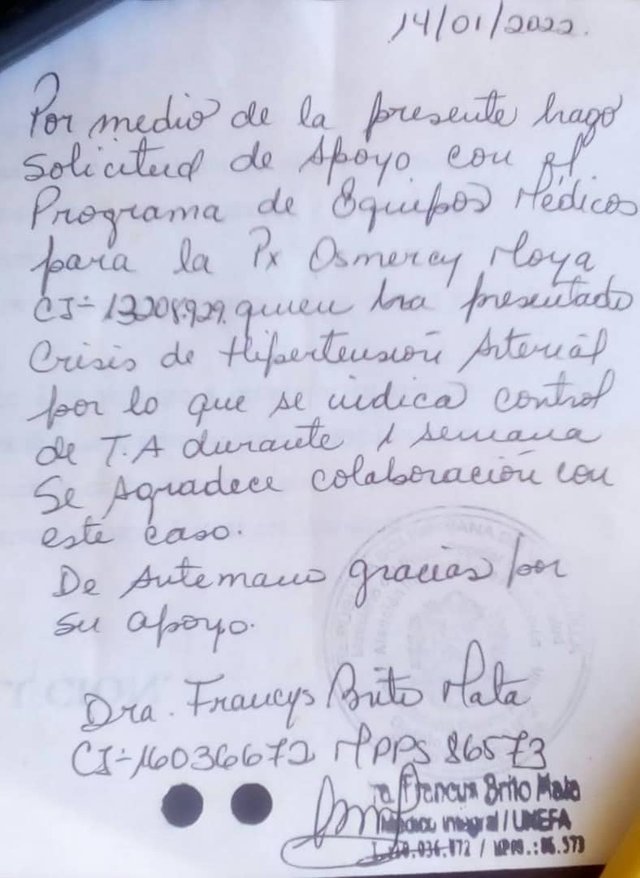 14/01/2022.
Por medio de la presente hago
Solicitud de Apoyo con el
Programa de Equipos Médicos
para la Px Osmercy Moya
CI:- 13208.929. quien ha presentado
Crisis de Hipertensión Arterial
por lo que se indica control
de T.A durante 1 semana
Se Agradece colaboración con
este caso.
De Antemano gracias por
su apoyo.
Dra. Francys Brito Mata
CI:-16036672 MPPS 86573
Francys Brito Mata
integral / UNEFA
/ MPPS.: 86.573